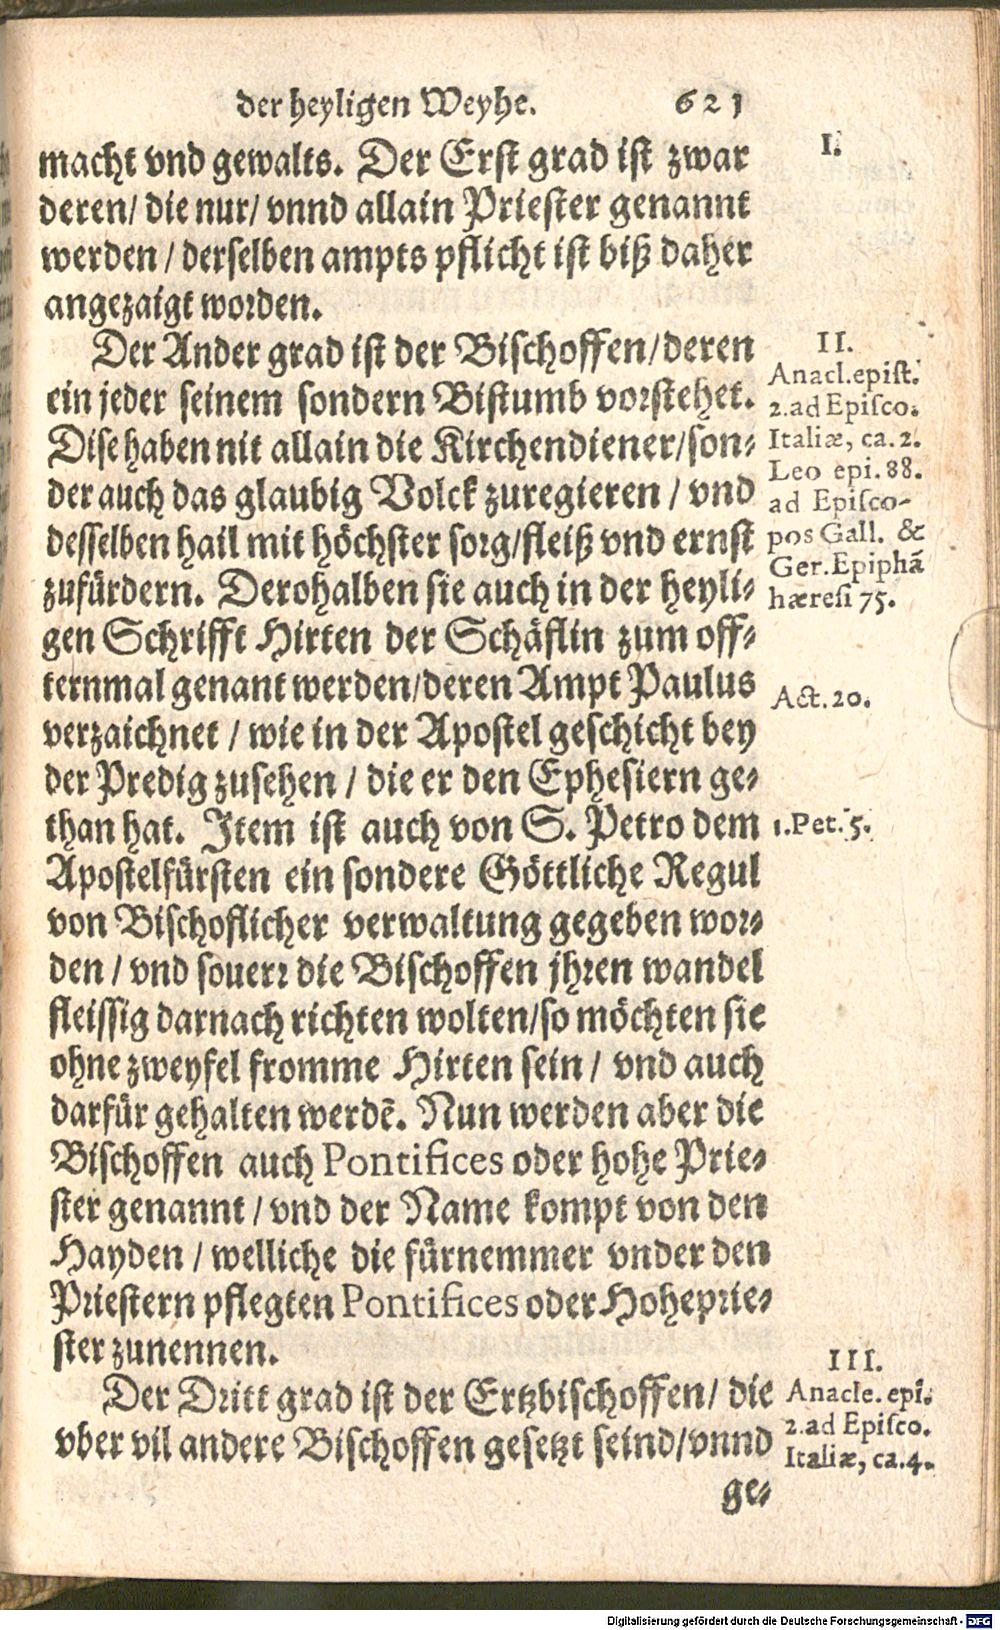 der heyligen Weyhe. 621
macht vnd gewalts. Der Erst grad ist zwar
deren/ die nur/ vnnd allain Priester genannt
werden / derselben ampts pflicht ist biß daher
angezaigt worden.
Der Ander grad ist der Bischoffen/deren
ein jeder seinem sondern Bistumb vorstehet.
Dise haben nit allain die Kirchendiener/son-
der auch das glaubig Volck zuregieren / vnd
desselben hail mit höchster sorg/fleiß vnd ernst
zufürdern. Derohalben sie auch in der heyli-
gen Schrifft Hirten der Schäflin zum off-
ternmal genant werden/deren Ampt Paulus
verzaichnet / wie in der Apostel geschicht bey
der Predig zusehen / die er den Ephesiern ge-
than hat. Item ist auch von S. Petro dem
Apostelfürsten ein sondere Göttliche Regul
von Bischoflicher verwaltung gegeben wor-
den / vnd souerr die Bischoffen jhren wandel
fleissig darnach richten wolten/so möchten sie
ohne zweyfel fromme Hirten sein / vnd auch
darfür gehalten werdē. Nun werden aber die
Bischoffen auch Pontifices oder hohe Prie-
ster genannt / vnd der Name kompt von den
Hayden / welliche die fürnemmer vnder den
Priestern pflegten Pontifices oder Hoheprie-
ster zunennen.
Der Dritt grad ist der Ertzbischoffen/ die
vber vil andere Bischoffen gesetzt seind/vnnd
ge-
I.
II.
Anacl.epist.
2.ad Episco.
Italiæ, ca.2.
Leo epi.88.
ad Episco-
pos Gall. &
Ger.Epiphā
hæresi 75.
Act.20.
1.Pet.5.
III.
Anacle.epi.
2.ad Episco.
Italiæ, ca.4.
Digitalisierung gefördert durch die Deutsche Forschungsgemeinschaft - DFG